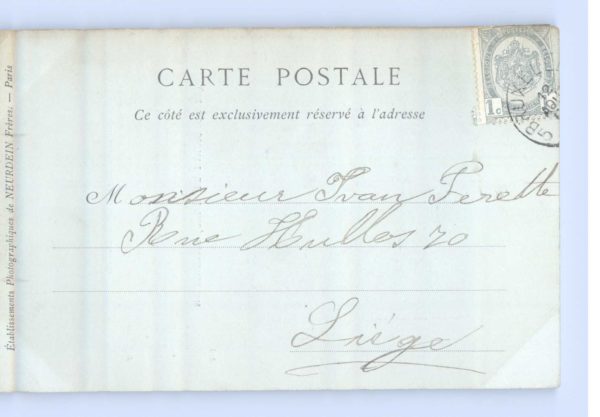 CARTE POSTALE
Ce côté est exclusivement réservé à l'adresse
Monsieur Ivan Perette
Rue Hullos 70
Liége
Établissements Photographiques de NEURDEIN Frères. — Paris
1c